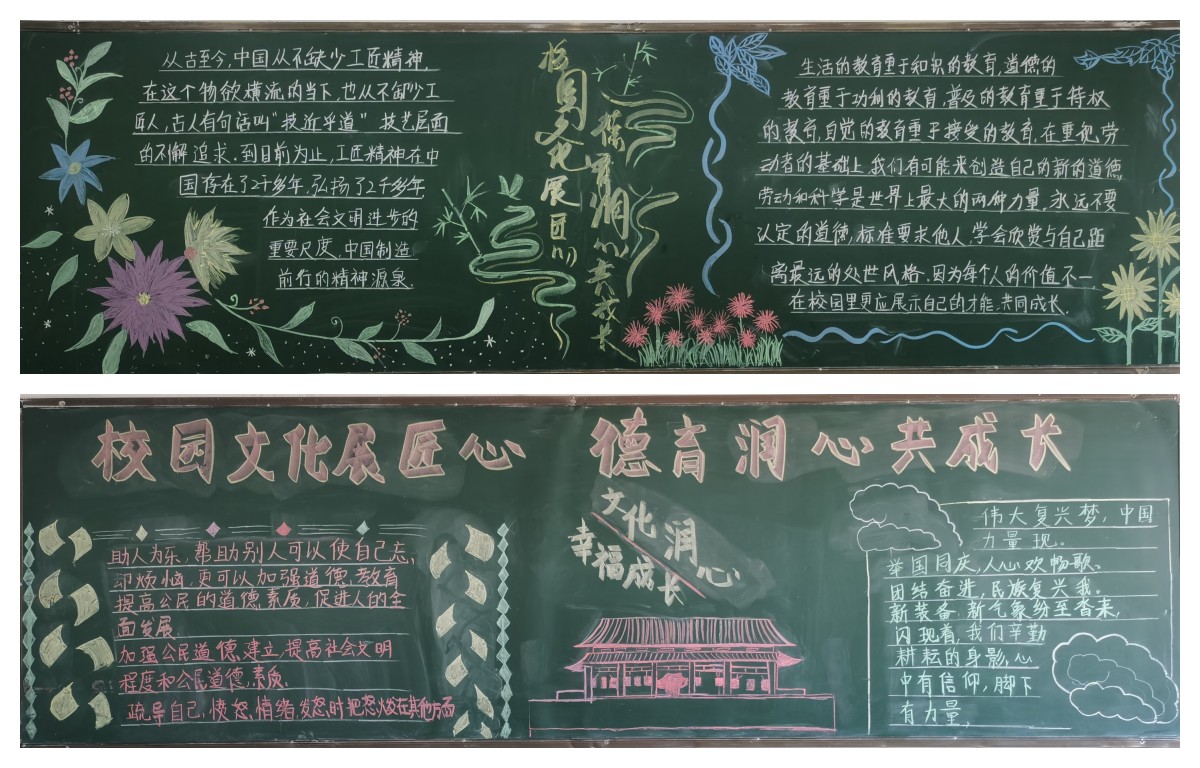 从古至今,中国从不缺少工匠精神,
在这个物欲横流的当下,也从不缺少工
匠人,古人有句话叫“技近乎道” 技艺层面
的不懈追求.到目前为止,工匠精神在中
国存在了2千多年,弘扬了2千多年
作为社会文明进步的
重要尺度,中国制造
前行的精神源泉.
校园文化展匠心
德育润心共成长
生活的教育重于知识的教育,道德的
教育重于功利的教育,普及的教育重于特权
的教育,自觉的教育重于接受的教育,在重视劳
动者的基础上,我们有可能来创造自己的新的道德,
劳动和科学是世界上最大的两种力量,永远不要
认定的道德,标准要求他人,学会欣赏与自己距
离最远的处世风格.因为每个人的价值不一
在校园里更应展示自己的才能,共同成长.
校园文化展匠心 德育润心共成长
助人为乐,帮助别人可以使自己忘,
却烦恼,更可以加强道德,教育
提高公民的道德,素质,促进人的全
面发展.
加强公民道德,建立,提高社会文明
程度和公民道德,素质.
疏导自己,愤怒,情绪,发怒时把怒火发在其他方面
文化润心
幸福成长
伟大复兴梦,中国
力量现。
举国同庆,人心欢畅歌、
团结奋进,民族复兴我。
新装备,新气象纷至沓来,
闪现着,我们辛勤
耕耘的身影,心
中有信仰,脚下
有力量,